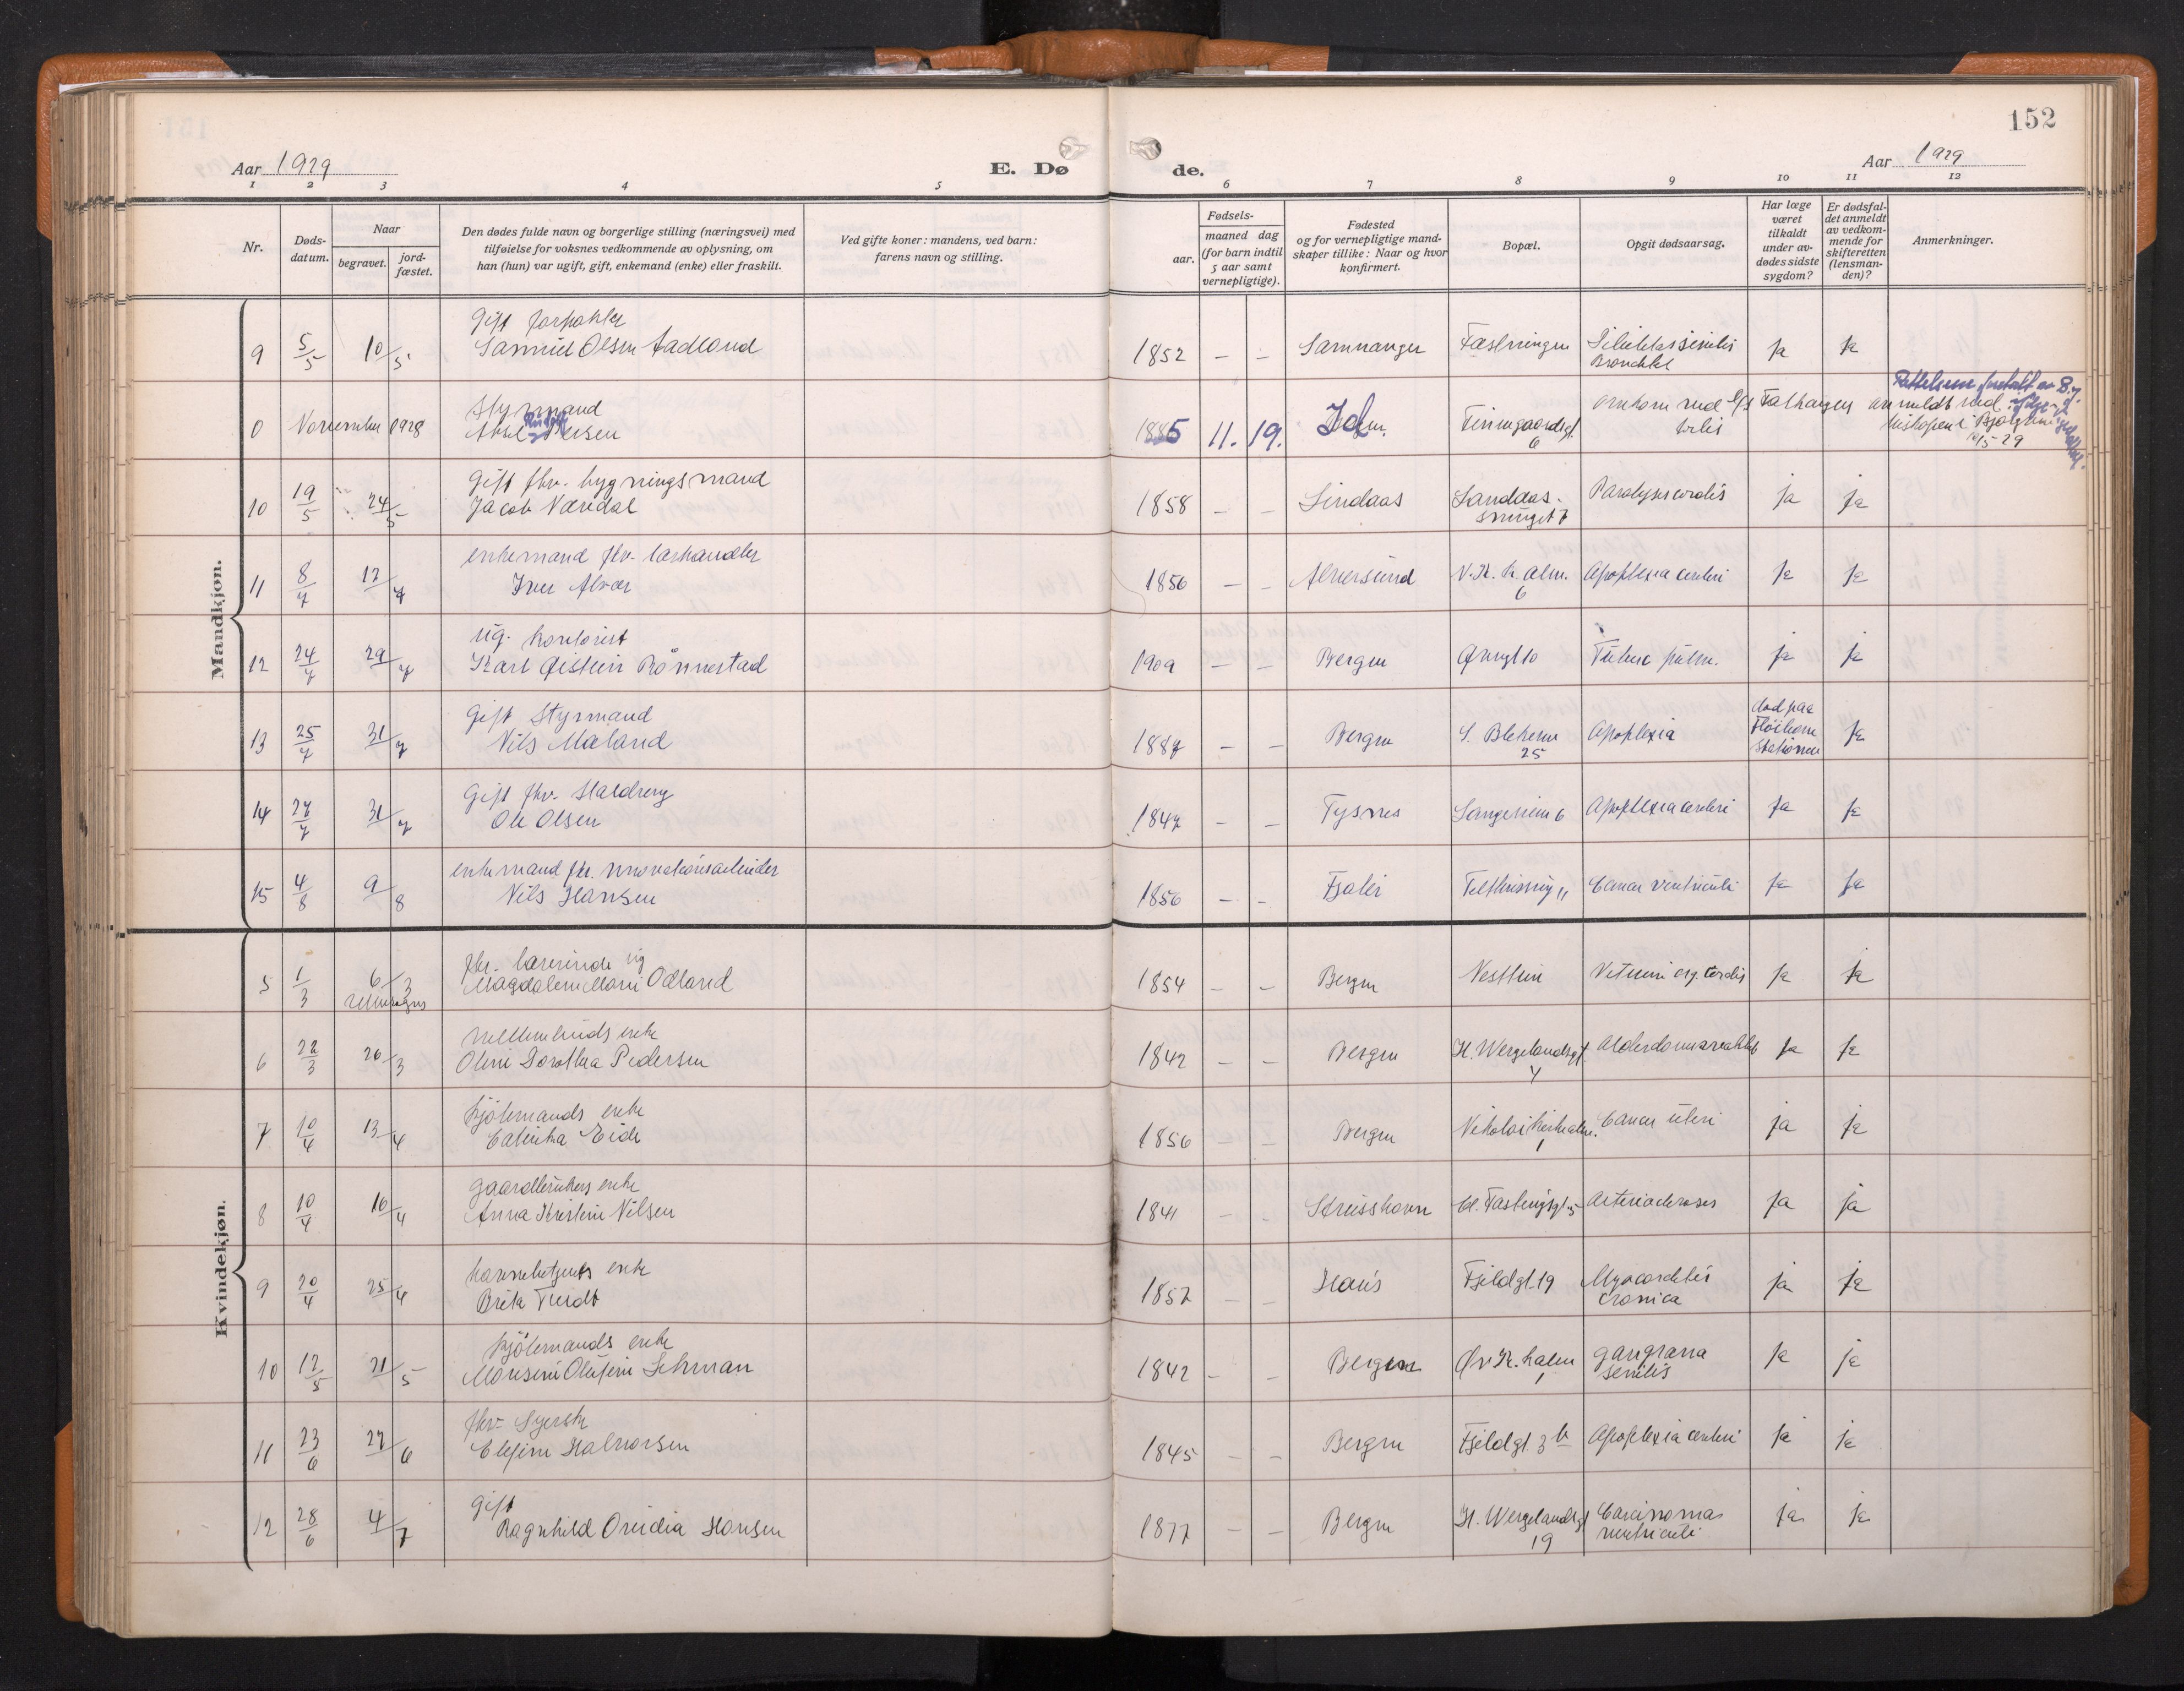 152
Aar 1929
E. Dø
de.
Aar 1929
1 2 3 4 5 6 7 8 9 10 11 12
Nr.
Døds-datum.
Naar
begravet.
jord-fæstet.
Den dødes fulde navn og borgerlige stilling (næringsvei) med
tilføielse for voksnes vedkommende av oplysning, om
han (hun) var ugift, gift, enkemand (enke) eller fraskilt.
Ved gifte koner: mandens, ved barn:
farens navn og stilling.
Fødsels-
aar.
maaned dag
(for barn indtil
5 aar samt
vernepligtige).
Fødested
og for vernepligtige mand-
skaper tillike: Naar og hvor
konfirmert.
Bopæl.
Opgit dødsaarsag.
Har læge
været
tilkaldt
under av-
dødes sidste
sygdom?
Er dødsfal-
det anmeldt
av vedkom-
mende for
skifteretten
(lensman-
den)?
Anmerkninger.
Mandkjøn.
Gift forpakter
9 5/5 10/5 Samuel Olsen Aadland 1852 – – Samnanger Fæstningen ja ja
Styrmand
0 November 1928 1885 11. 19. Finnegaardsgt. omkom med
6
15-29
Gift fhv. bygningsmand
10 19/5 24/5 Jacob Nævdal 1858 – – Lindaas Landaas- Paralysis cordis ja ja
svinget 7
enkemand fhv.
11 8/7 12/7 Iver Alvær 1856 – – Alversund N. K. k. alm. Apoplexia cerebri ja ja
6
ug. kontorist
12 24/7 29/7 Karl Øistein Rönnestad 1909 – – Bergen Øvregt 10 Tuberc pulm. ja ja
Gift Styrmand død paa
13 25/7 31/7 Nils Mæland 1887 – – Bergen S. Blekevn Apoplexia Flöibane ja
25 stationen
Gift fhv.
14 27/7 31/7 Ole Olsen 1847 – – Tysnes 6 Apoplexia cerebri ja ja
enkemand fhv. renovationsarbeider
15 4/8 9/8 Nils Hansen 1856 – – Fjaler 11 Cancer ventriculi ja ja
Kvindekjøn.
fhv. lærerinde ug
5 1/3 6/3 Magdalene Marie Odland 1854 – – Bergen Nesttun Vitium org. cordis ja ja
enke
6 22/3 26/3 Oline Dorothea Pedersen 1842 – – Bergen H. Wergelandsgt. Alderdomssvakhet ja ja
4
kjölemands enke
7 10/4 13/4 Catinka Eide 1856 – – Bergen Nikolaikirkealm. Cancer uteri ja ja
1
gaardbrukers enke
8 10/4 16/4 Anna Kristine Nilsen 1841 – – Strusshavn 5 Arteriosclerosis ja ja
havnebetjents enke
9 20/4 25/4 Brita 1857 – – Haus Fjeldgt. 19 Myocarditis ja ja
cronica
kjölemands enke
10 17/5 21/5 Monsine Olufine Lehman 1842 – – Bergen Øv K. k alm gangræna ja ja
1 senilis
fhv. Syerske
11 23/6 27/6 Elefine Halvorsen 1845 – – Bergen Fjeldgt. 3 b Apoplexia cerebri ja ja
gift
12 28/6 4/7 Ragnhild Ovidia Hansen 1877 – – Bergen H. Wergelandsgt Carcinoma ja ja
19 ventriculi